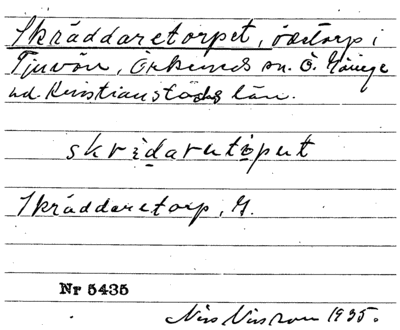 Skräddaretorpet, ödetorp i
Tjuvön, Örkeneds sn. Ö. Göinge
hd. Kristianstads län.
skrädaretòpet
Skräddaretorp, G.
Nr 5435
Nils Nilsson 1935.